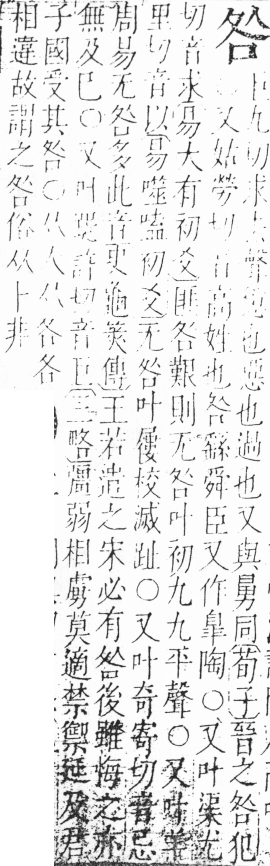 咎
九切求上聲愆也惡也過也又與舅同荀子晉之咎犯
又姑勞切音高姓也咎繇舜臣又作臯陶○又叶渠尤
切音求易大有初爻匪咎艱則无咎叶初九九平聲○又叶羊
里切音以易噬嗑初爻无咎叶屨校滅趾○又叶奇寄切音忌
周易无咎多此音史龜筴傳王若遣之宋必有咎後雖悔之亦
無及巳○又叶許切音巨三略彊弱相虜莫適禁禦延及君
子國受其咎○从人从各各
相違故謂之咎俗从卜非